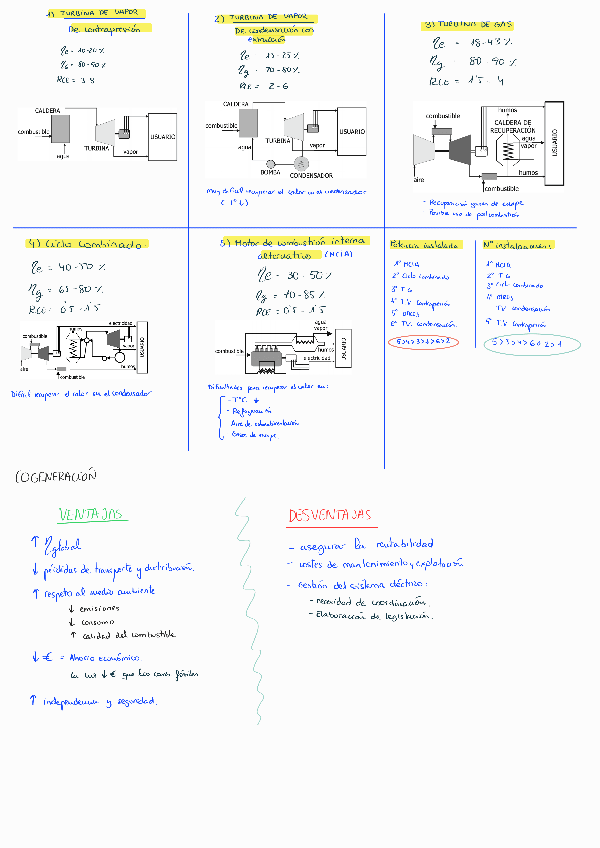 1) TURBINA DE VAPOR
De contrapresión
ηe = 10-20 %
ηg = 80-90 %
RCE = 3-8
CALDERA
combustible
agua
TURBINA
vapor
USUARIO
2) TURBINA DE VAPOR
De condensación con
extracción
ηe = 15-25 %
ηg = 70-80 %
RCE = 2-6
CALDERA
combustible
agua
TURBINA
vapor
USUARIO
BOMBA
CONDENSADOR
muy difícil recuperar el calor en el condensador
(Tª↓)
3) TURBINA DE GAS
ηe = 18-43 %
ηg = 80-90 %
RCE = 1'5 - 4
combustible
humos
CALDERA DE
RECUPERACIÓN
agua
vapor
USUARIO
aire
humos
combustible
- Recuperación gases de escape
Posible uso de postcombustión
4) Ciclo Combinado
ηe = 40-50 %
ηg = 65-80 %
RCE = 0'5 - 1'5
combustible
humos
electricidad
vapor
USUARIO
aire
humos
combustible
Difícil recuperar el calor en el condensador
5) Motor de combustión interna
alternativo (MCIA)
ηe = 30-50 %
ηg = 70-85 %
RCE = 0'5 - 1'5
agua
vapor
combustible
humos
electricidad
USUARIO
Dificultades para recuperar el calor en:
- TªC ↓
- Refrigeración
Aire de sobrealimentación
Gases de escape
Potencia instalada
1º MCIA
2º Ciclo combinado
3º T.G
4º T.V Contrapresión
5º
6º T.V. condensación
5>4>3>1>6>2
Nº instalaciones
1º MCIA
2º T.G
3º Ciclo combinado
4º
T.V condensación
5º T.V Contrapresión
5>3>4>6>2>1
COGENERACIÓN
VENTAJAS
↑ ηglobal
↓ pérdidas de transporte y distribución.
↑ respeto al medio ambiente
↓ emisiones
↓ consumo
↑ calidad del combustible
↓ € = Ahorro económico.
↓ € que los comb. fósiles
↑ independencia y seguridad.
DESVENTAJAS
- asegurar la rentabilidad
- costes de mantenimiento y explotación
- Gestión del sistema eléctrico:
- necesidad de coordinación.
- Elaboración de legislación.